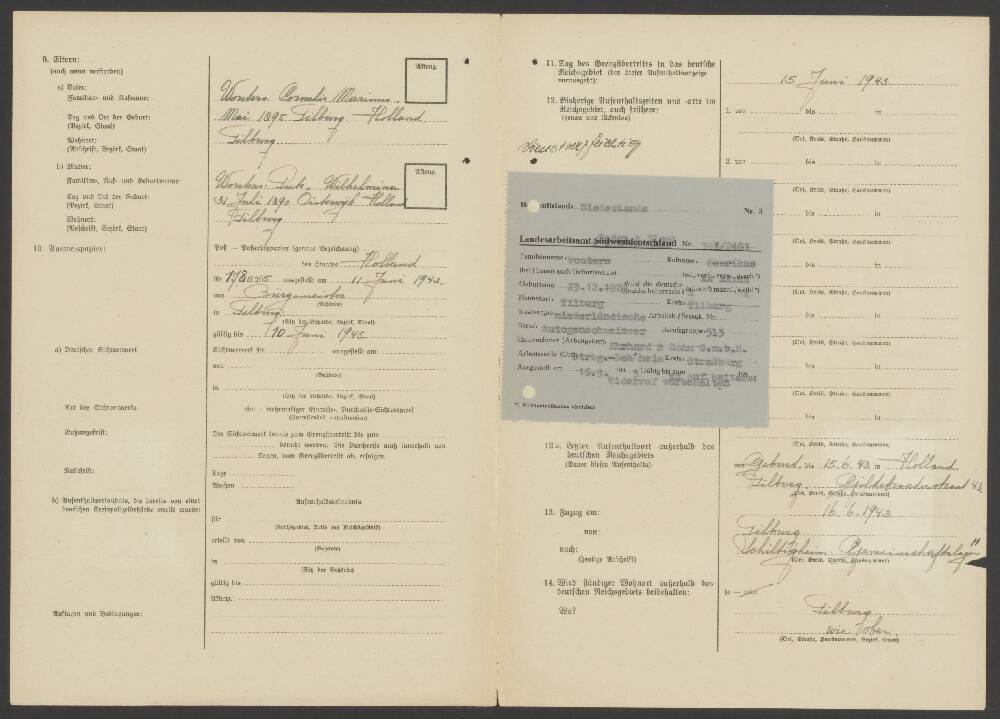 9. Eltern:
(auch wenn verstorben)
a) Vater:
Familien- und Rufname:
Tag und Ort der Geburt:
(Bezirk, Staat)
Wohnort:
(Anschrift, Bezirk, Staat)
b) Mutter:
Familien-, Ruf- und Geburtsname
Tag und Ort der Geburt:
(Bezirk, Staat)
Wohnort:
(Anschrift, Bezirk, Staat)
Aktenz.
Wouters Cornelis Marinus
Mai 1895 Tilburg - Holland
Tilburg
Aktenz.
Wouters Wilhelmina
31 Juli 1890 Oisterwijk Holland
Tilburg
10. Ausweispapier:
Paß — Passersatzpapier (genaue Bezeichnung)
des Staates Holland
Nr. 178045 ausgestellt am 11 Juni 1943
von Burgemeister
(Behörde)
in Tilburg
(Sitz der Behörde, Bezirk, Staat)
gültig bis 10 Juni 1945
a) Deutscher Sichtvermerk
Sichtvermerk Nr. ausgestellt am
von
(Behörde)
in
(Sitz der Behörde, Bezirk, Staat)
Art des Sichtvermerks:
ein- mehrmaliger Einreise- Durchreise-Sichtvermerk
(Zutreffendes unterstreichen)
Nutzungsfrist:
Der Sichtvermerk konnte zum Grenzübertritt bis zum
benutzt werden. Die Durchreise muß innerhalb von
Tagen, vom Grenzübertritt ab, erfolgen.
Reisefrist:
Tage
Wochen
b) Aufenthaltserlaubnis, die bereits von einer
deutschen Kreispolizeibehörde erteilt wurde:
Aufenthaltserlaubnis
für
(Reichsgebiet, Teile des Reichsgebiets)
erteilt von
(Behörde)
in
(Sitz der Behörde)
gültig bis
Aktenz.:
Auflagen und Bedingungen:
11. Tag des Grenzübertritts in das deutsche
Reichsgebiet (der dieser Aufenthaltsanzeige
vorausgeht):
15 Juni 1943
12. Bisherige Aufenthaltszeiten und -orte im
Reichsgebiet, auch frühere:
(genau und lückenlos)
dienstverpflichtig
1. von bis in
(Ort, Kreis, Straße, Hausnummer)
2. von bis in
(Ort, Kreis, Straße, Hausnummer)
bis in
(Ort, Kreis, Straße, Hausnummer)
bis in
(Ort, Kreis, Straße, Hausnummer)
bis in
(Ort, Kreis, Straße, Hausnummer)
bis in
(Ort, Kreis, Straße, Hausnummer)
bis in
(Ort, Kreis, Straße, Hausnummer)
bis in
(Ort, Kreis, Straße, Hausnummer)
Niederlande
Nr. 3
Landesarbeitsamt Südwestdeutschland Nr.
Familienname: Wouters Rufname: Henrikus
(bei Frauen auch Geburtsname)
Geburtstag 25.12.19
Heimatort: Tilburg Kreis: Tilburg
niederländische Arbeitsb.-/Ersatzk. Nr.
Beruf: Autogenschweisser Berufsgruppe: 513
Unternehmer (Arbeitgeber): Ehrhard & Sohn G.m.b.H.
Arbeitsstelle (Ort): Strbg.-Sch'heim Kreis: Straßburg
Ausgestellt am 16.9. 194 3 Gültig bis zum 194
Widerruf vorbehalten
*) Nichtzutreffendes streichen
12a. Letzter Aufenthaltsort außerhalb des
deutschen Reichsgebiets
(Dauer dieses Aufenthalts):
von Geburt bis 15.6.43 in Holland
Tilburg
(Ort, Kreis, Straße, Hausnummer)
13. Zuzug am:
16.6.1943
von:
Tilburg
nach:
(Heutige Anschrift)
Schiltigheim Gemeinschaftslager
(Ort, Kreis, Straße, Hausnummer)
14. Wird ständiger Wohnort außerhalb des
deutschen Reichsgebiets beibehalten:
ja — nein
Wo?
Tilburg
wie oben.
(Ort, Straße, Hausnummer, Bezirk, Staat)